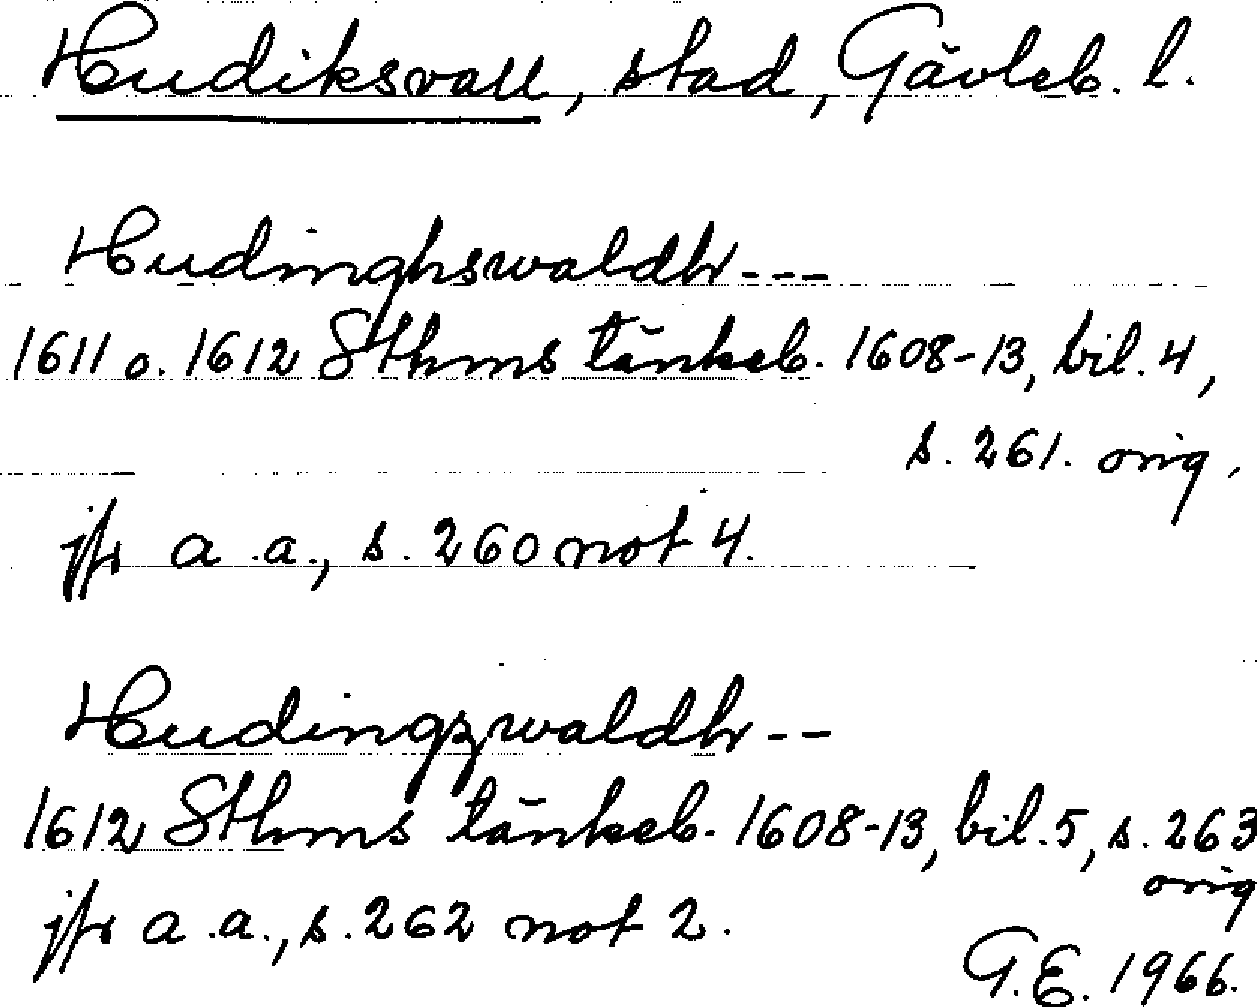 Hudiksvall, stad, Gävleb. l.
Hudinghswaldh ---
1611 o. 1612 Sthms tänkeb. 1608-13, bil. 4,
s. 261. orig.
jfr a.a., s. 260 not 4.
Hudingzwaldh --
1612 Sthms tänkeb. 1608-13, bil. 5, s. 263
orig
jfr a.a., s. 262 not 2.
G.E. 1966.